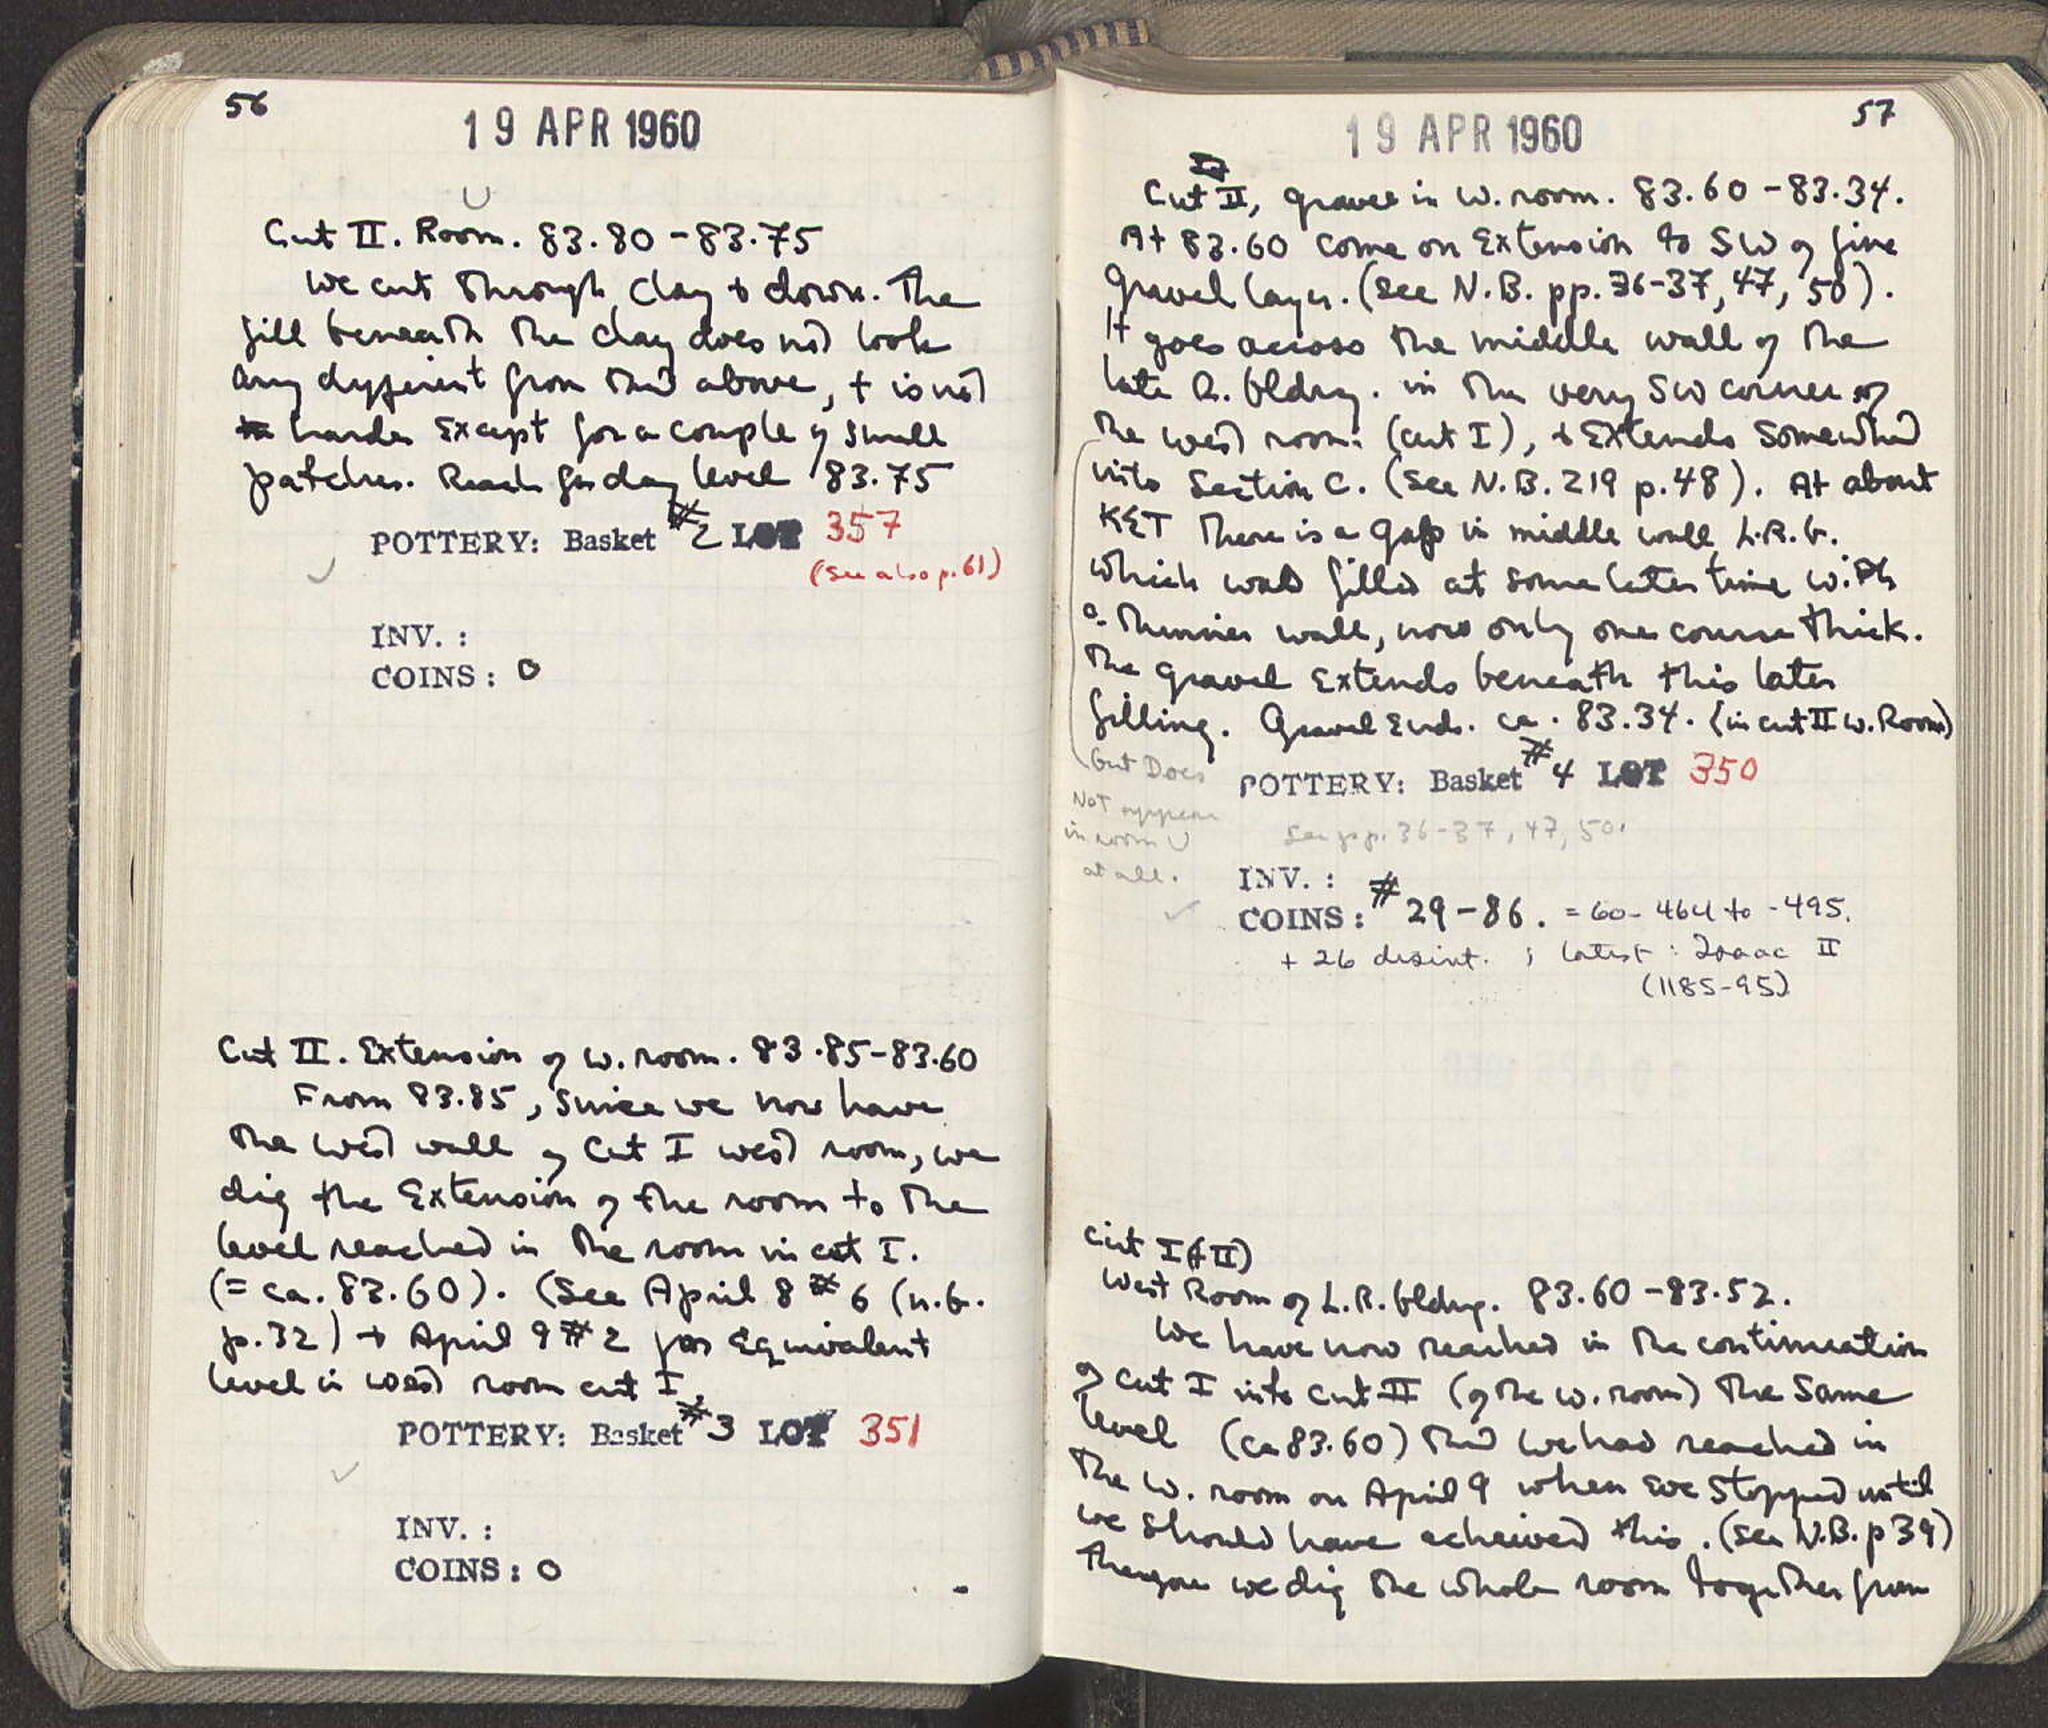 56
19 APR 1960
U
Cut II. Room. 83.80 - 83.75
We cut through clay & down. The
fill beneath the clay does not look
any different from that above, + is not
harder except for a couple of small
patches. Reach for day level 83.75
POTTERY: Basket #2 LOT 357
(see also p. 61)
INV. :
COINS: 0
Cut II. Extension of W. room. 83.85-83.60
From 83.85, since we now have
the west wall of Cut I west room, we
dig the Extension of the room to the
level reached in the room in cut I.
(= ca. 83.60). (See April 8 #6 (n.b.
p.32) + April 9 #2 for Equivalent
level in west room cut I.
POTTERY: Basket #3 LOT 351
INV. :
COINS: 0
57
19 APR 1960
Cut II, gravel in W. room. 83.60 - 83.34.
At 83.60 come on Extension to SW of fine
gravel layer. (See N.B. pp. 36-37, 47, 50).
It goes across the middle wall of the
late R. bldng. in the very SW corner of
the west room (cut I), & Extends somewhat
into Section C. (See N.B. 219 p.48). At about
KET there is a gap in middle wall L.R.b.
which was filled at some later time with
a thinner wall, now only one course thick.
The gravel Extends beneath this later
filling. Gravel ends ca. 83.34. (in cut II W. Room)
(but Does
Not appear
in room U
at all.
POTTERY: Basket #4 LOT 350
See pp. 36-37, 47, 50.
INV. :
COINS: #29-86. = 60-464 to -495.
+ 26 disint. ; latest : Isaac II
(1185-95)
Cut I (+II)
West Room of L.R. bldng. 83.60 - 83.52.
We have now reached in the continuation
of cut I into cut II (of the W. room) the same
level (ca 83.60) that we had reached in
the W. room on April 9 when we stopped until
we should have acheived this. (see N.B. p 39)
Therefore we dig the whole room together from